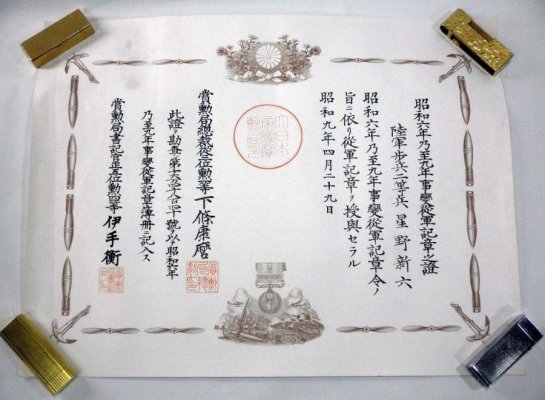 昭和六年乃至九年事變從軍記章之證
陸軍歩兵二等兵 星野新六
昭和六年乃至九年事變從軍記章令ノ
旨ニ依リ從軍記章ヲ授與セラル
昭和九年四月二十九日
賞勲局總裁從三位勲等 下條康麿
此證ヲ勘査シ第號ヲ以テ昭和六年
乃至九年事變從軍記章簿册ニ記入ス
賞勲局書記官正五位勲四等 伊手衡